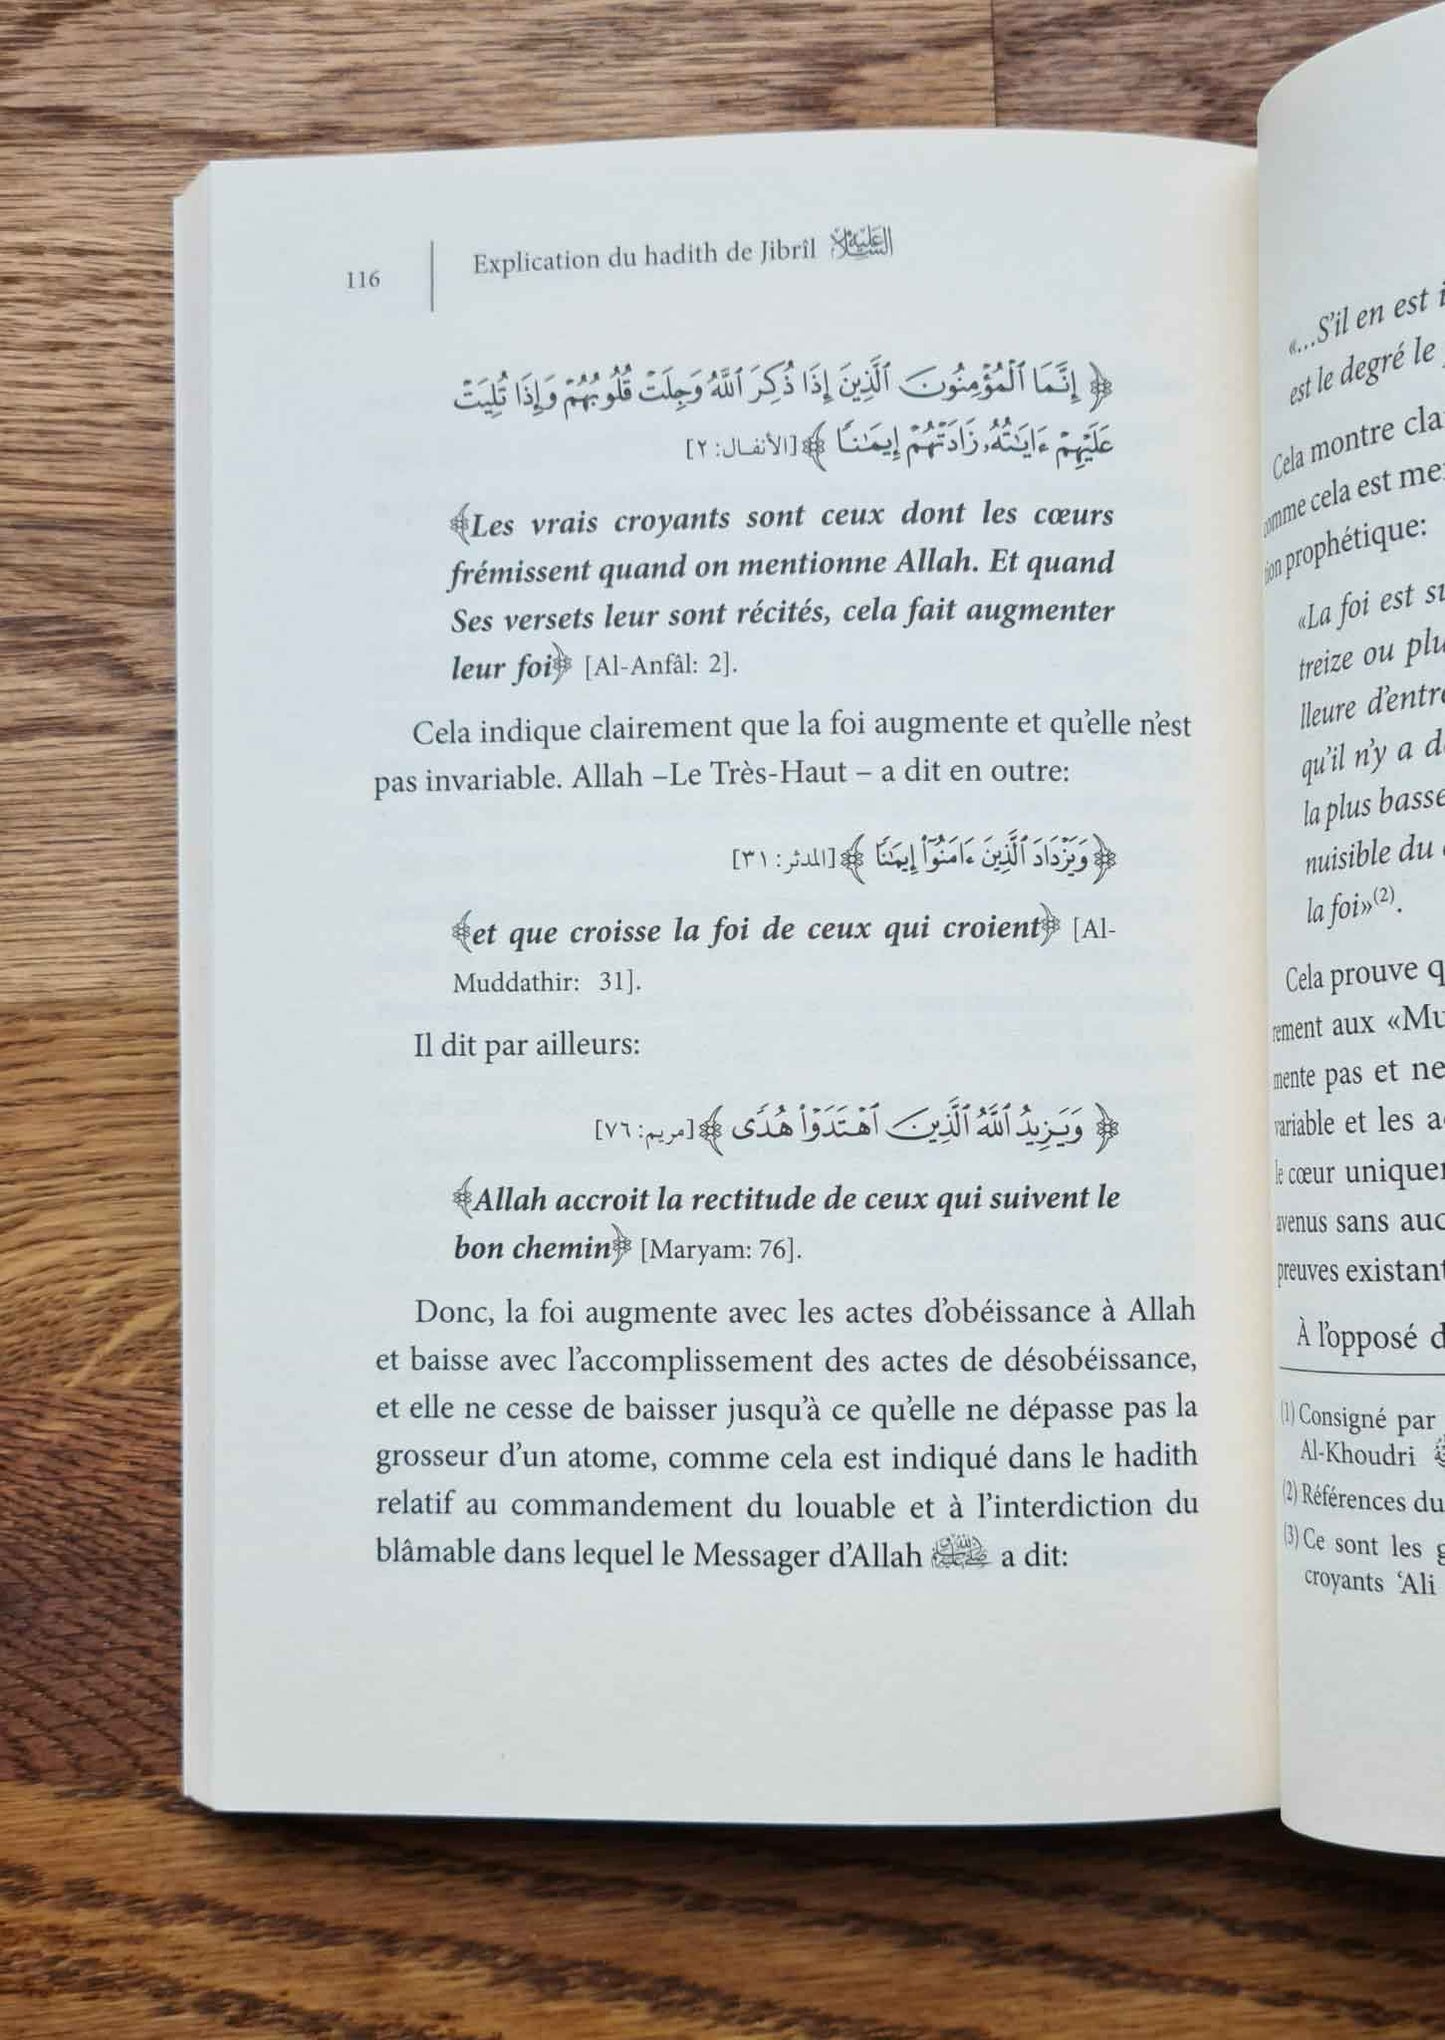 116
Explication du hadith de Jibrîl عليه السلام
﴿ إِنَّمَا ٱلْمُؤْمِنُونَ ٱلَّذِينَ إِذَا ذُكِرَ ٱللَّهُ وَجِلَتْ قُلُوبُهُمْ وَإِذَا تُلِيَتْ
عَلَيْهِمْ ءَايَٰتُهُۥ زَادَتْهُمْ إِيمَٰنًا ﴾ [الأنفال: ٢]
﴾Les vrais croyants sont ceux dont les cœurs
frémissent quand on mentionne Allah. Et quand
Ses versets leur sont récités, cela fait augmenter
leur foi﴿ [Al-Anfâl: 2].
Cela indique clairement que la foi augmente et qu'elle n'est
pas invariable. Allah –Le Très-Haut – a dit en outre:
﴿ وَيَزْدَادَ ٱلَّذِينَ ءَامَنُوٓا۟ إِيمَٰنًا ﴾ [المدثر: ٣١]
﴾et que croisse la foi de ceux qui croient﴿ [Al-
Muddathir: 31].
Il dit par ailleurs:
﴿ وَيَزِيدُ ٱللَّهُ ٱلَّذِينَ ٱهْتَدَوْا۟ هُدًى ﴾ [مريم: ٧٦]
﴾Allah accroit la rectitude de ceux qui suivent le
bon chemin﴿ [Maryam: 76].
Donc, la foi augmente avec les actes d'obéissance à Allah
et baisse avec l'accomplissement des actes de désobéissance,
et elle ne cesse de baisser jusqu'à ce qu'elle ne dépasse pas la
grosseur d'un atome, comme cela est indiqué dans le hadith
relatif au commandement du louable et à l'interdiction du
blâmable dans lequel le Messager d'Allah ﷺ a dit:
«...S'il en est
est le degré le
Cela montre
comme cela est
prophétique:
«La foi est
treize ou
lleure
qu'il n'y a
la plus basse
nuisible du
la foi»(2).
Cela prouve
rement aux
mente pas et ne
variable et les
le cœur
avenus sans
preuves
À l'opposé
(1) Consigné par
Al-Khoudri
(2) Références du
(3) Ce sont les
croyants 'Ali